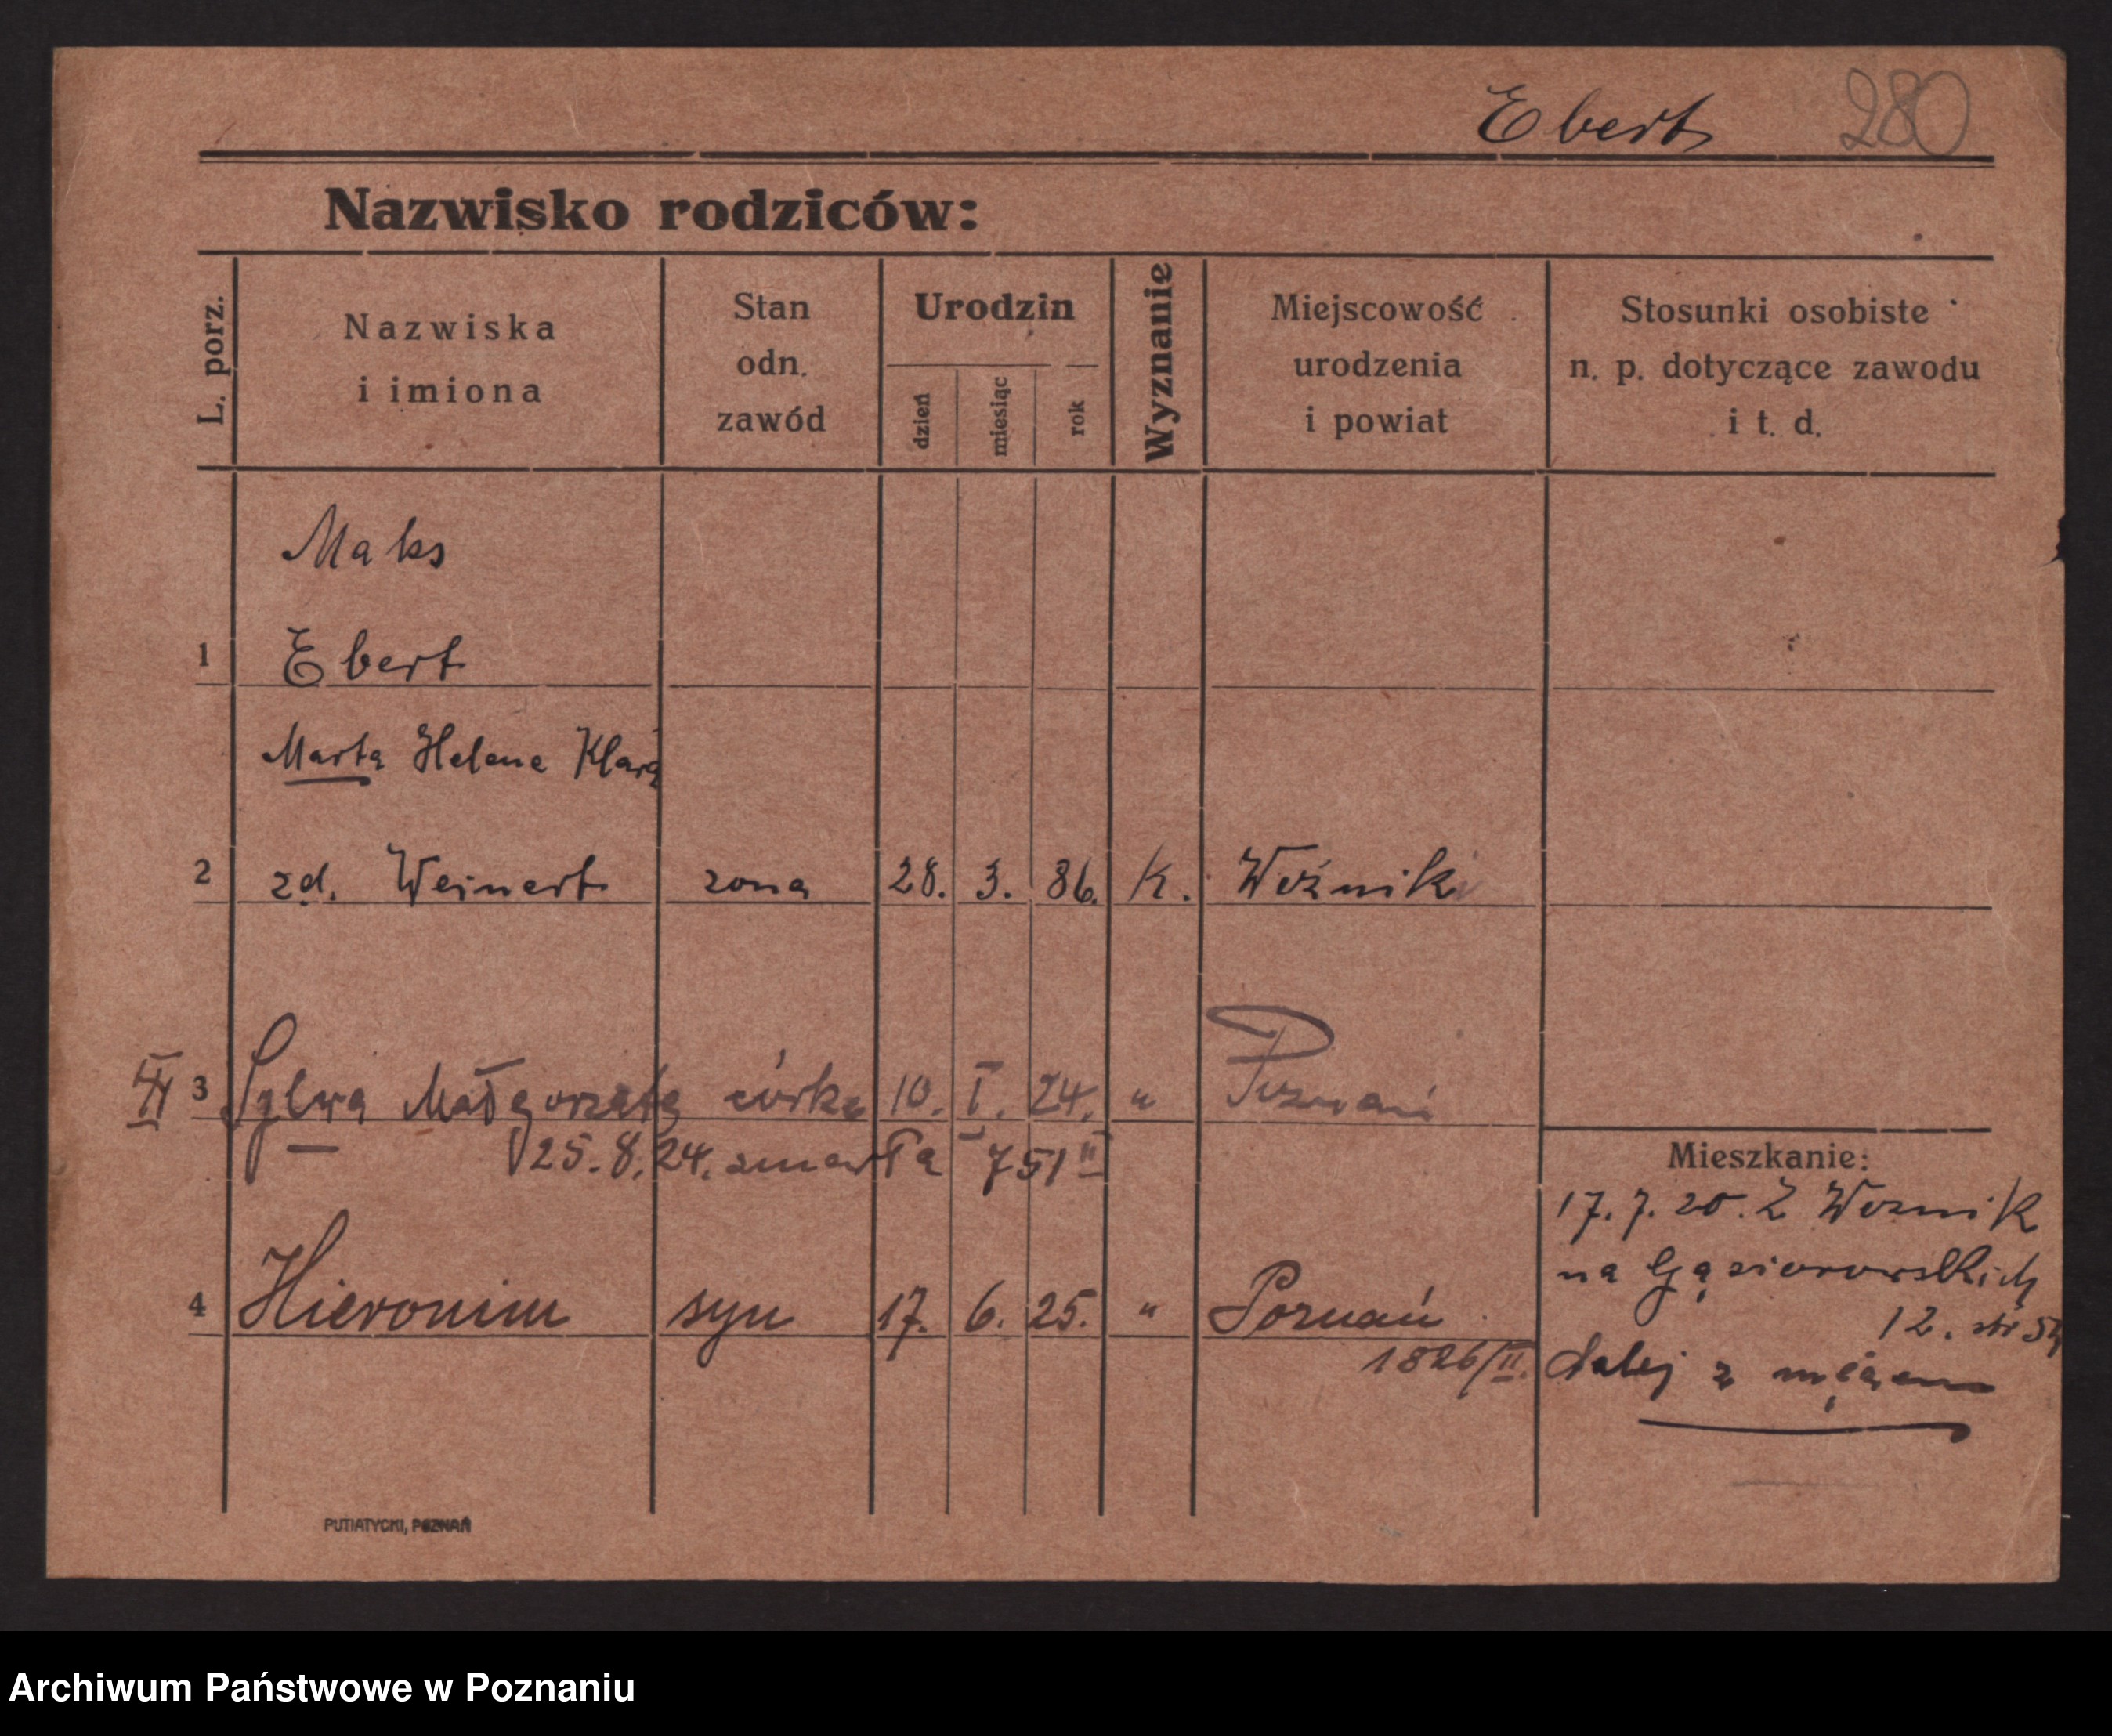 Ebert 280
Nazwisko rodziców:
L. porz.
Nazwiska
i imiona
Stan
odn.
zawód
Urodzin
dzień
miesiąc
rok
Wyznanie
Miejscowość
urodzenia
i powiat
Stosunki osobiste
n. p. dotyczące zawodu
i t. d.
Maks
1 Ebert
Marta Helena Klara
2 zd. Weinert zona 28. 3. 86. K. Woźniki
3 Sylwa Małgorzata córka 10. I. 24. " Poznań
25.8.24. zmarła 751 II
Mieszkanie:
17.7.20. Z Woznik
na Gąsiorowskich
12. str
4 Hieronim syn 17. 6. 25. " Poznań
1826/II.
dalej z mężem
PUTIATYCKI, POZNAŃ
Archiwum Państwowe w Poznaniu